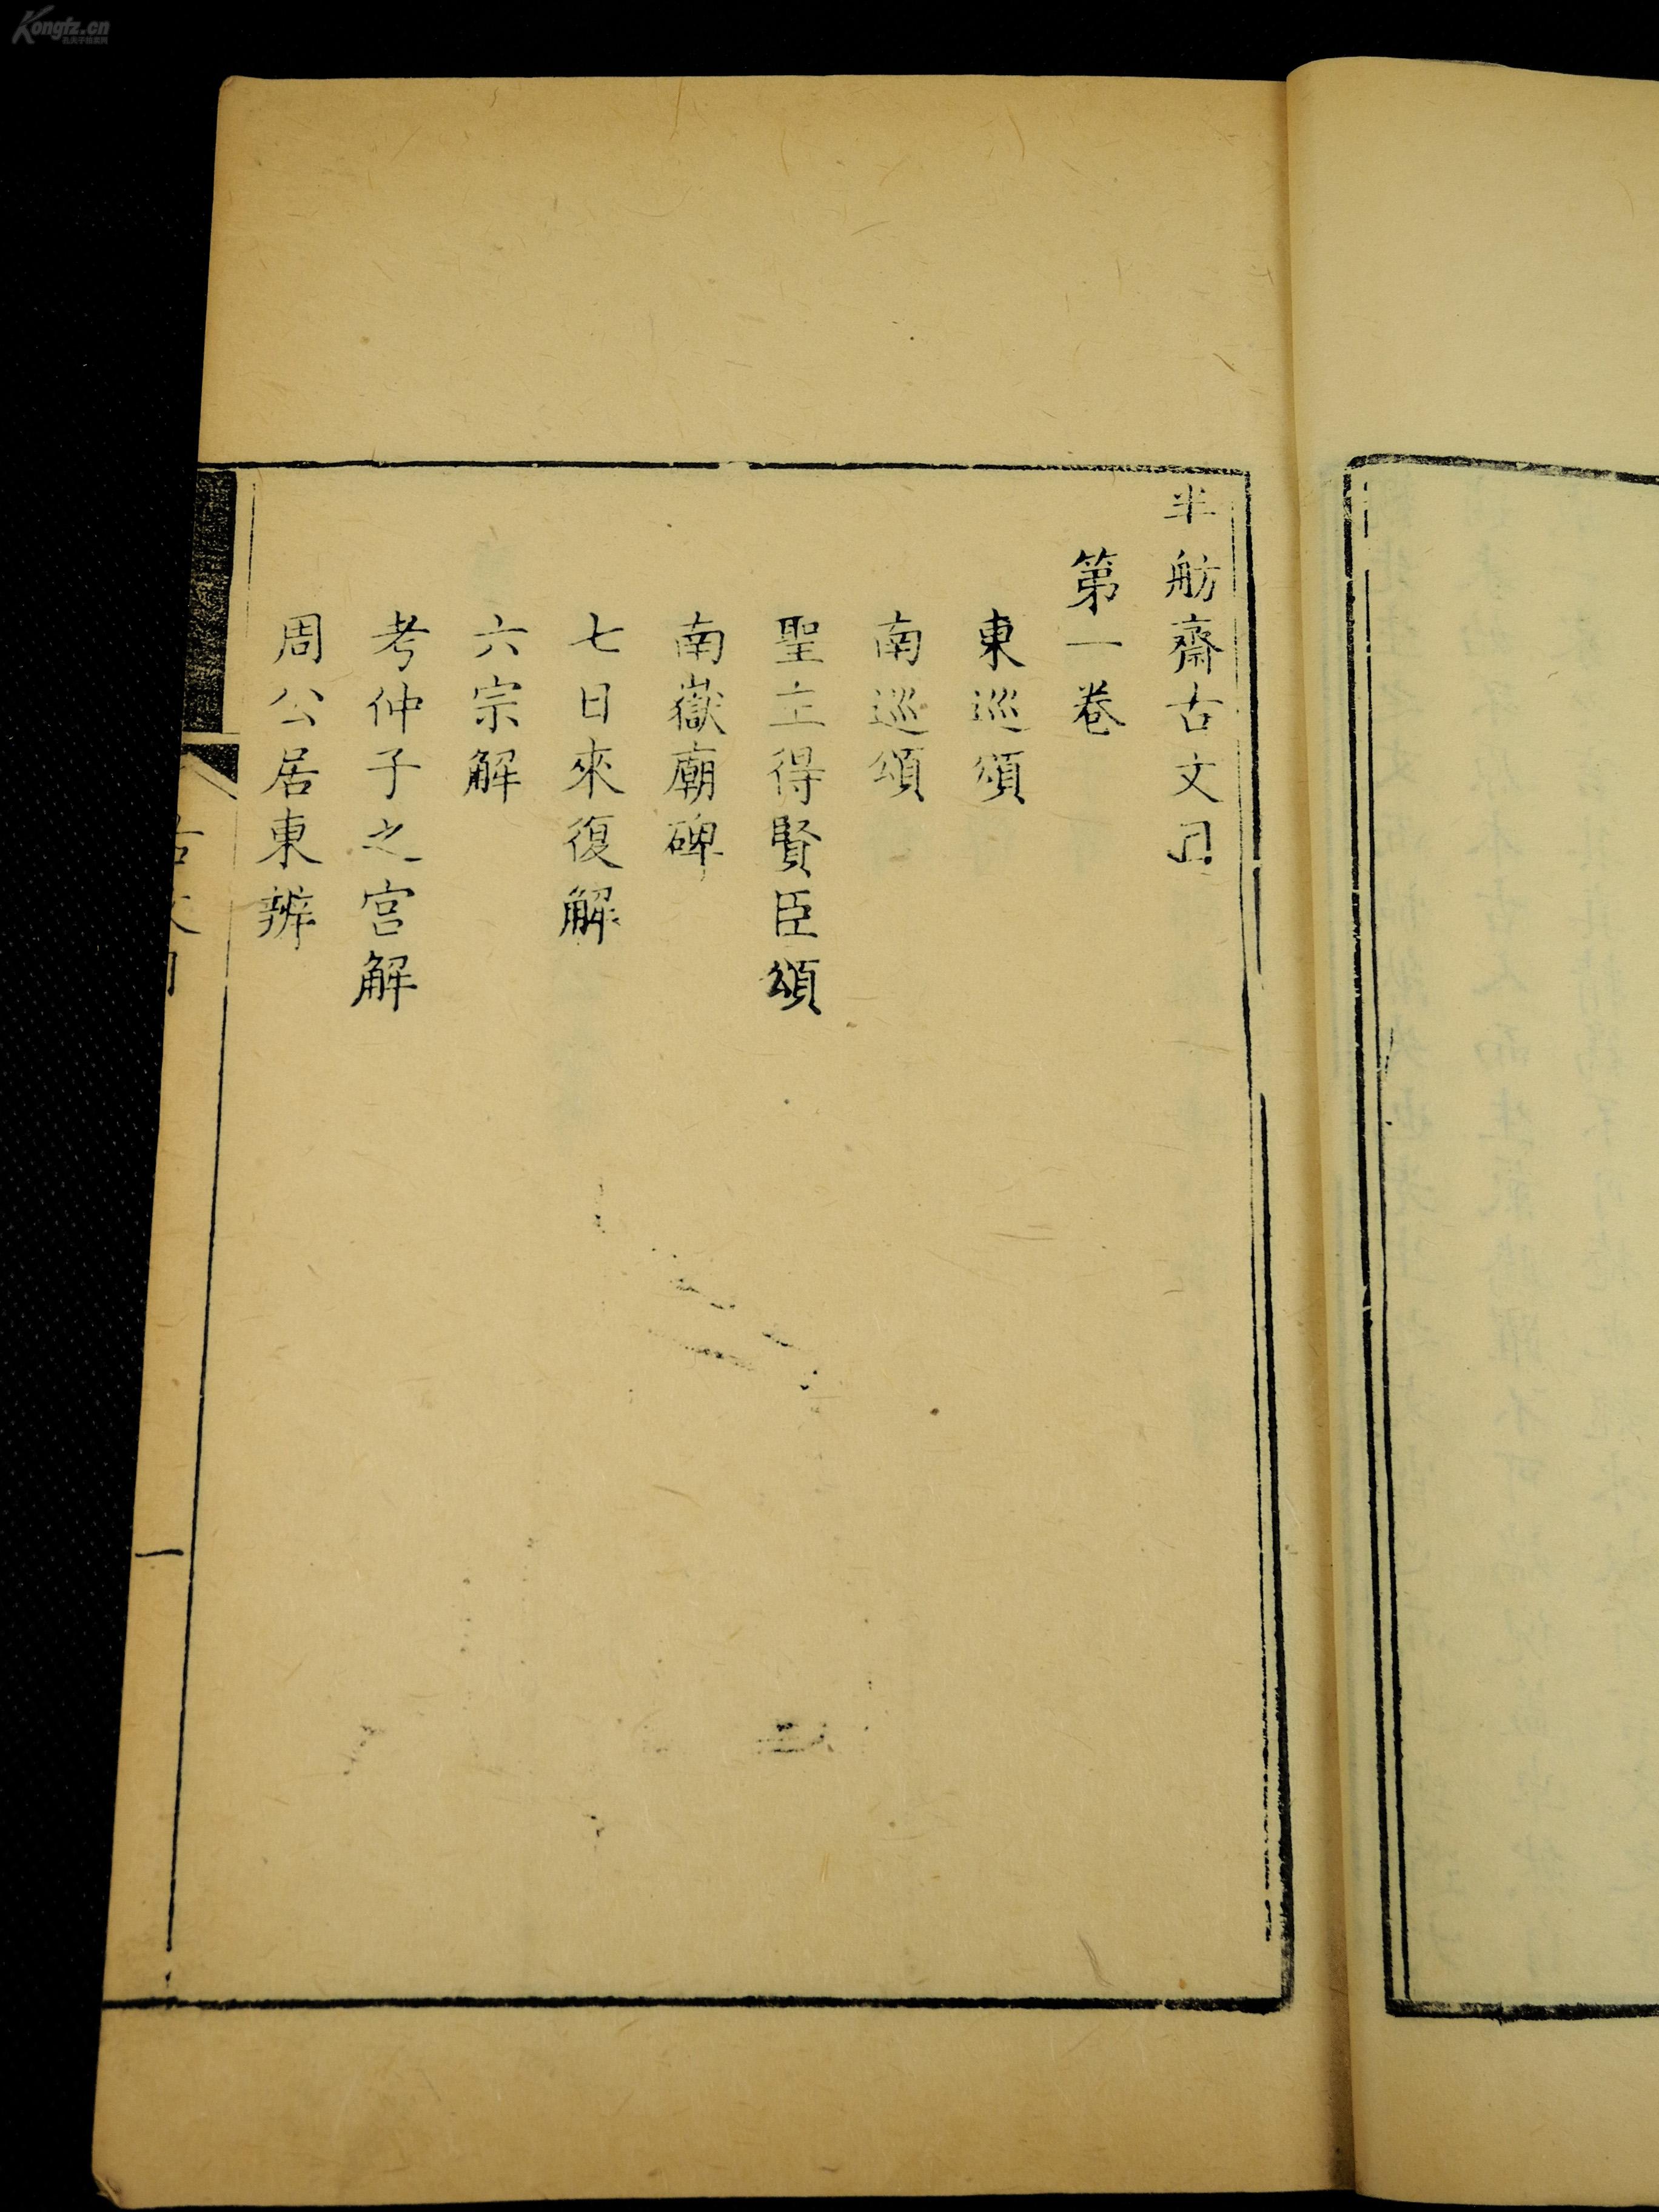 半舫齋古文目
第一卷
東巡頌
南巡頌
聖主得賢臣頌
南嶽廟碑
七日來復解
六宗解
考仲子之宮解
周公居東辨
一
Kongfz.cn